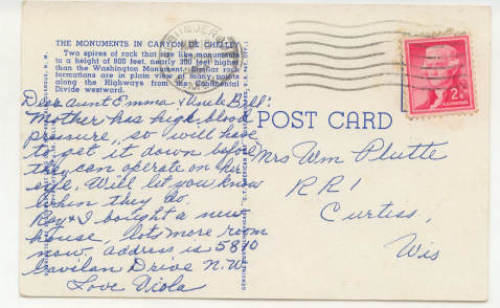 THE MONUMENTS IN CANYON DE CHELLEY
Two spires of rock that rise like monuments
to a height of 800 feet, nearly 300 higher
than the Washington Monument. Similar rock
formations are in plain view of many points
along the Highways from the Continental
Divide westward.
Dear Aunt Emma & Uncle Bill:
Mother has high blood
pressure, so will have
to get it down before
they can operate on her
eye. Will let you know
when they do.
Ray & I bought a new
house, lots more room
now, address is 5810
Gavilan Drive N.W.
Love Viola
POST CARD
Mrs Wm Plutte
RR1
Curtiss,
Wis
2¢